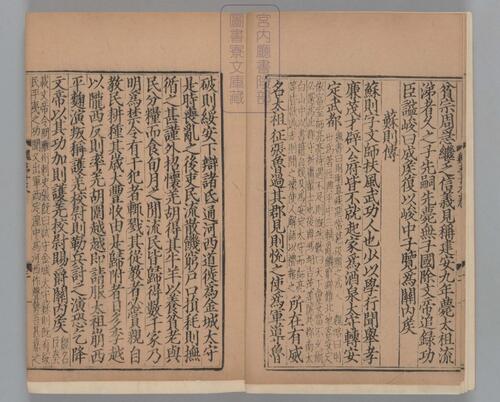 宮內廳書陵部
圖書寮文庫藏
貧宗周急繼乏信義見稱建安九年薨太祖流
涕者久之子先嗣先薨無子國除文帝追錄功
臣謚峻曰成侯復以峻中子覽爲關內侯
蘇則傳
蘇則字文師扶風武功人也少以學行聞舉孝
廉茂才辟公府皆不就起家爲酒泉太守轉安
定武都 所在有威
名太祖征張魯過其郡見則悅之使爲軍導魯
破則綏安下辯諸氐通河西道徙爲金城太守
是時喪亂之後吏民流散飢窮戶口損耗則撫
循之甚謹外招懷羌胡得其牛羊以養貧老與
民分糧而食旬月之間流民皆歸得數千家乃
明爲禁令有干犯者輒戮其從教者必賞親自
教民耕種其歲大豐收由是歸附者日多李越
以隴西反則率羌胡圍越越即請服太祖崩西
平麴演叛稱護羌校尉則勒兵討之演恐乞降
文帝以其功加則護羌校尉賜爵關內侯